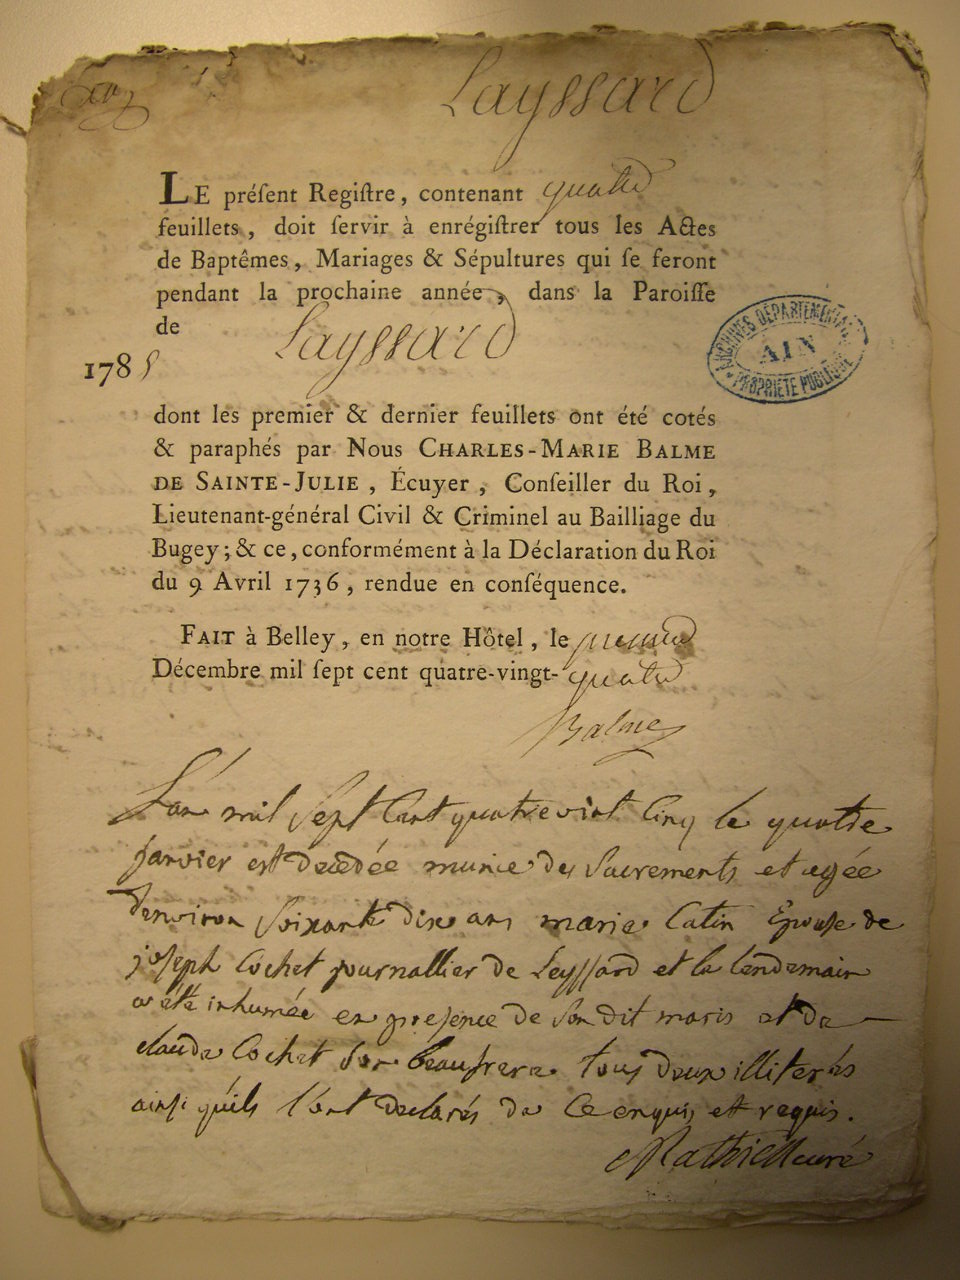 Layssard
LE préſent Regiſtre, contenant quatre
feuillets, doit ſervir à enrégiſtrer tous les Actes
de Baptêmes, Mariages & Sépultures qui ſe feront
pendant la prochaine année, dans la Paroiſſe
de Layssard
1785
ARCHIVES DÉPARTEMENTALES
AIN
PROPRIÉTÉ PUBLIQUE
dont les premier & dernier feuillets ont été cotés
& paraphés par Nous CHARLES-MARIE BALME
DE SAINTE-JULIE, Écuyer, Conſeiller du Roi,
Lieutenant-général Civil & Criminel au Bailliage du
Bugey; & ce, conformément à la Déclaration du Roi
du 9 Avril 1736, rendue en conſéquence.
FAIT à Belley, en notre Hôtel, le premier
Décembre mil ſept cent quatre-vingt-quatre
Balme
L'an mil Sept Cent quatrevint Cinq le quatre
janvier est decedée munie des Sacrements et agée
d'environ Soixante dix ans marie Catin Epouse de
joseph Cochet journallier de Leyssard et le lendemain
a été inhumée en presence de Son dit maris et de
claude Cochet Son beaufrere tous deux illiterés
ainsi qu'ils l'ont declarés de Ce enquis et requis.
Rathier curé